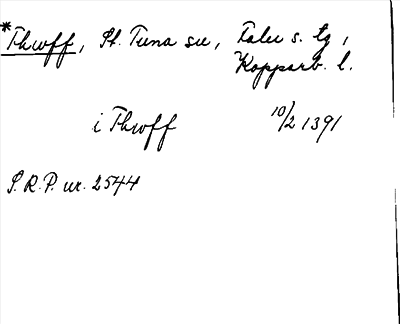 *Thwff, St. Tuna sn, Falu s. tg,
Kopparb. l.
i Thwff 10/2 1391
S.R.P. nr. 2544